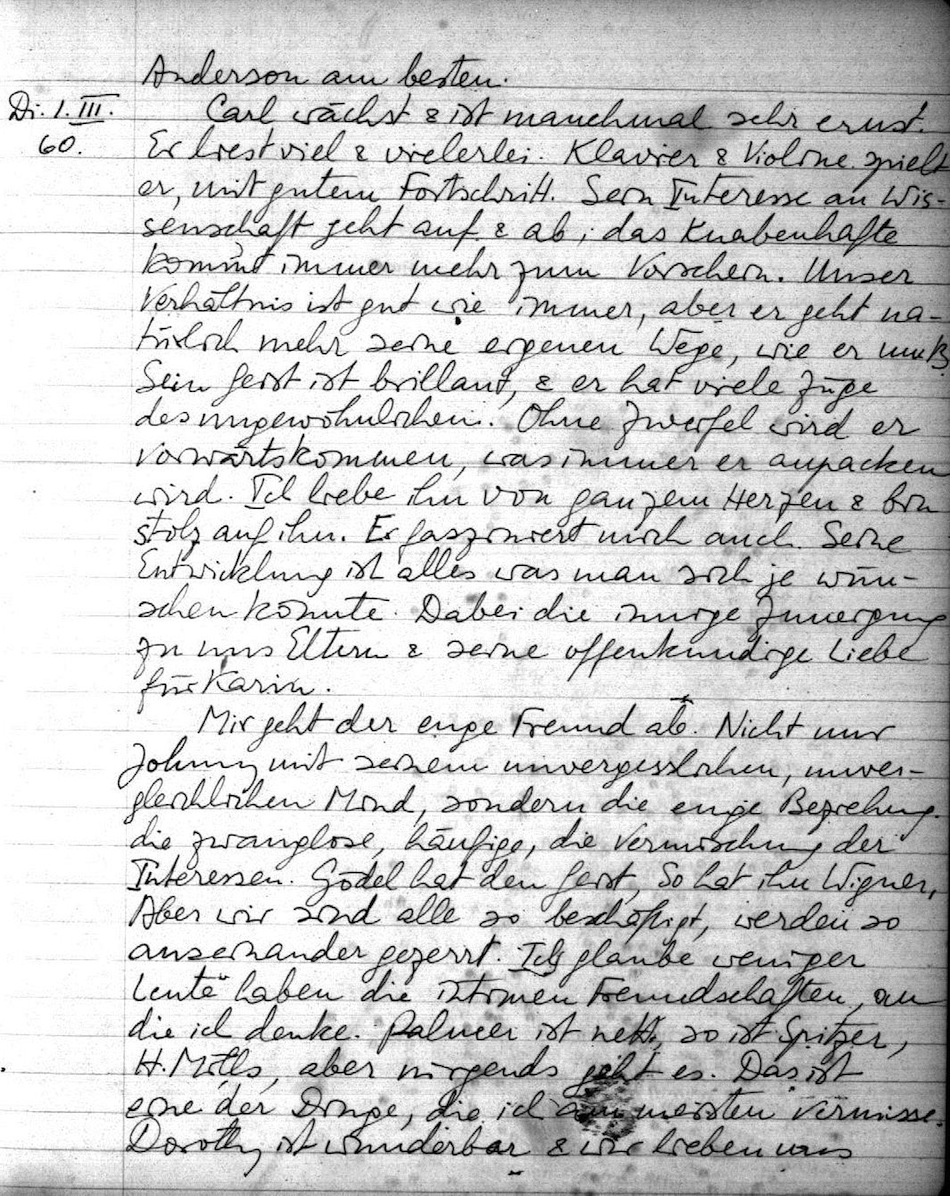 Anderson am besten.
Di. 1. III. 60.
Carl wächst & ist manchmal sehr ernst.
Er liest viel & vielerlei. Klavier & Violine spielt
er, mit gutem Fortschritt. Sein Interesse an Wis-
senschaft geht auf & ab; das Knabenhafte
kommt immer mehr zum Vorschein. Unser
Verhältnis ist gut wie immer, aber er geht na-
türlich mehr seine eigenen Wege, wie er muß.
Sein Geist ist brillant, & er hat viele Züge
des ungewöhnlichen. Ohne Zweifel wird er
vorwärtskommen, was immer er anpacken
wird. Ich liebe ihn von ganzem Herzen & bin
stolz auf ihn. Er fasziniert mich auch. Seine
Entwicklung ist alles was man sich je wün-
schen könnte. Dabei die innige Zuneigung
zu uns Eltern & seine offenkundige Liebe
für Karin.
Mir geht der enge Freund ab. Nicht nur
Johnny mit seinem unvergesslichen, unver-
gleichlichen Mind, sondern die enge Beziehung.
die zwanglose, häufige, die Vermischung der
Interessen. Gödel hat den Geist, So hat ihn Wigner,
Aber wir sind alle so beschäftigt, werden so
auseinander gezerrt. Ich glaube weniger
Leute haben die intimen Freundschaften, an
die ich denke. Palmer ist nett, so ist Spitzer,
H. Mills, aber nirgends geht es. Das ist
eine der Dinge, die ich am meisten vermisse.
Dorothy ist wunderbar & wir lieben uns